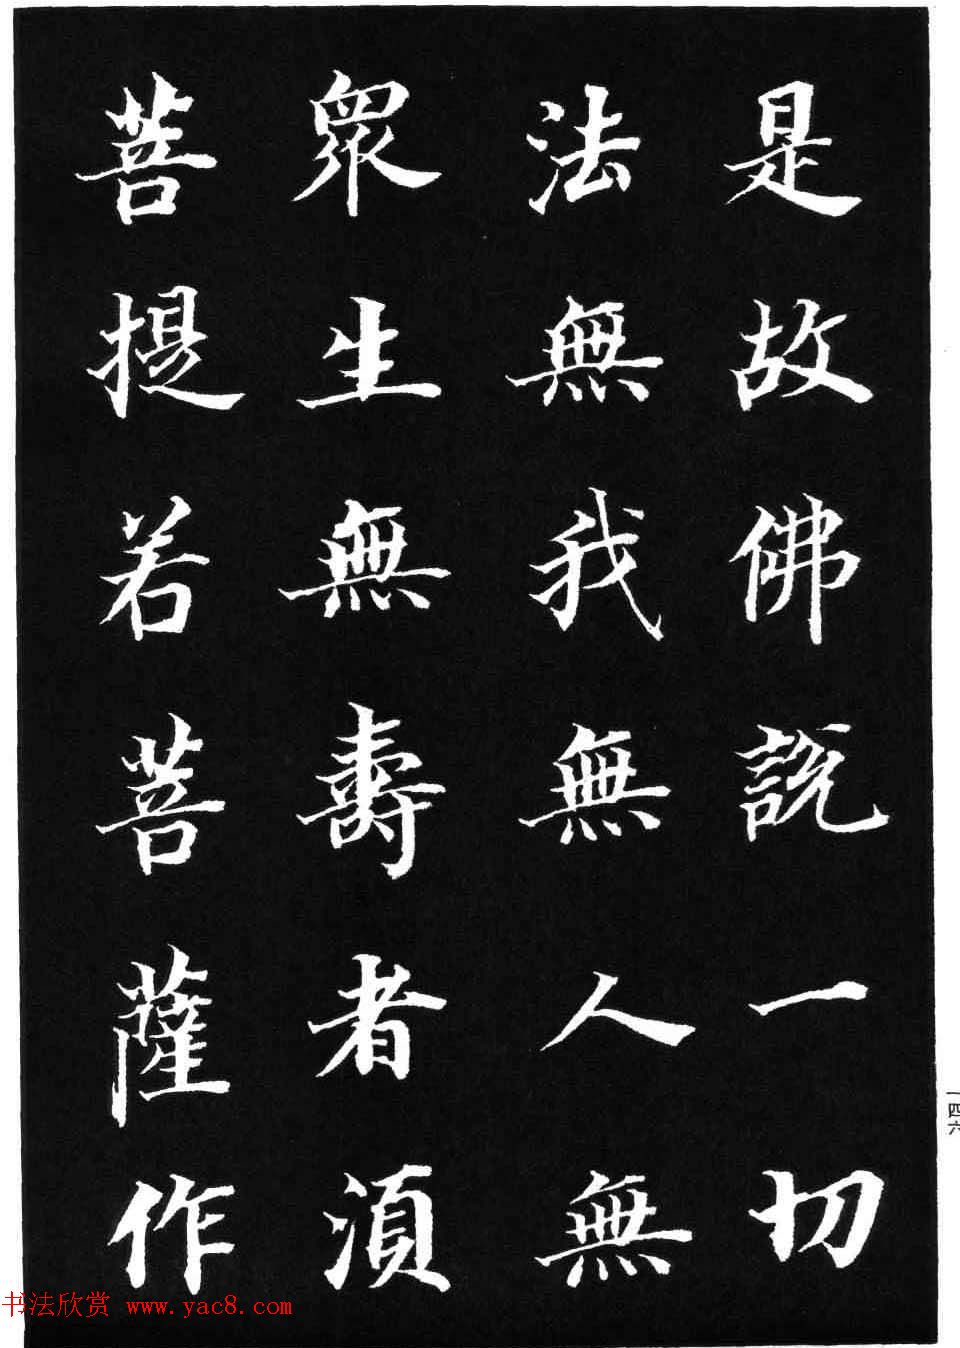 是故佛說一切
法無我無人無
眾生無壽者須
菩提若菩薩作
一四六
书法欣赏 www.yac8.com